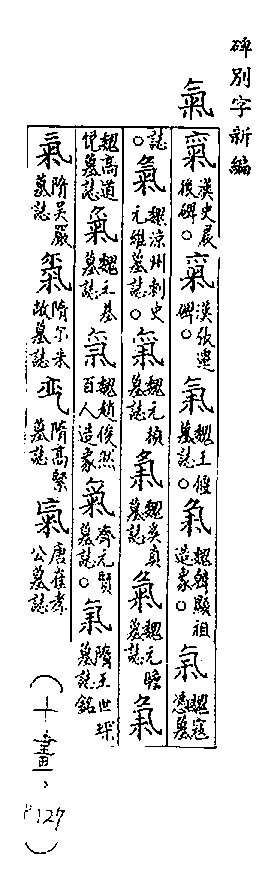 碑別字新編
氣
氣漢史晨後碑○氣漢張遷碑○氣魏王偃墓誌○氣魏韓顯祖造象○氣魏寇憑墓
誌○氣魏涼州刺史元維墓誌○氣魏元楨墓誌氣魏奚真墓誌氣魏元瞻墓誌氣
魏高道悅墓誌氣魏元基墓誌氣魏趙俊然百人造象氣齊元賢墓誌○氣隋王世琛墓誌銘
氣隋吳嚴墓誌氣隋尔朱敞墓誌氣隋高緊墓誌氣唐崔孝公墓誌
(十畫、P127)